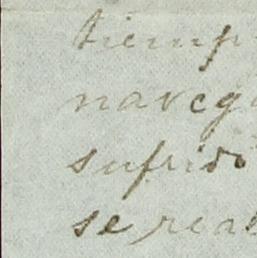 tiemp
naveg
sufrido
se real